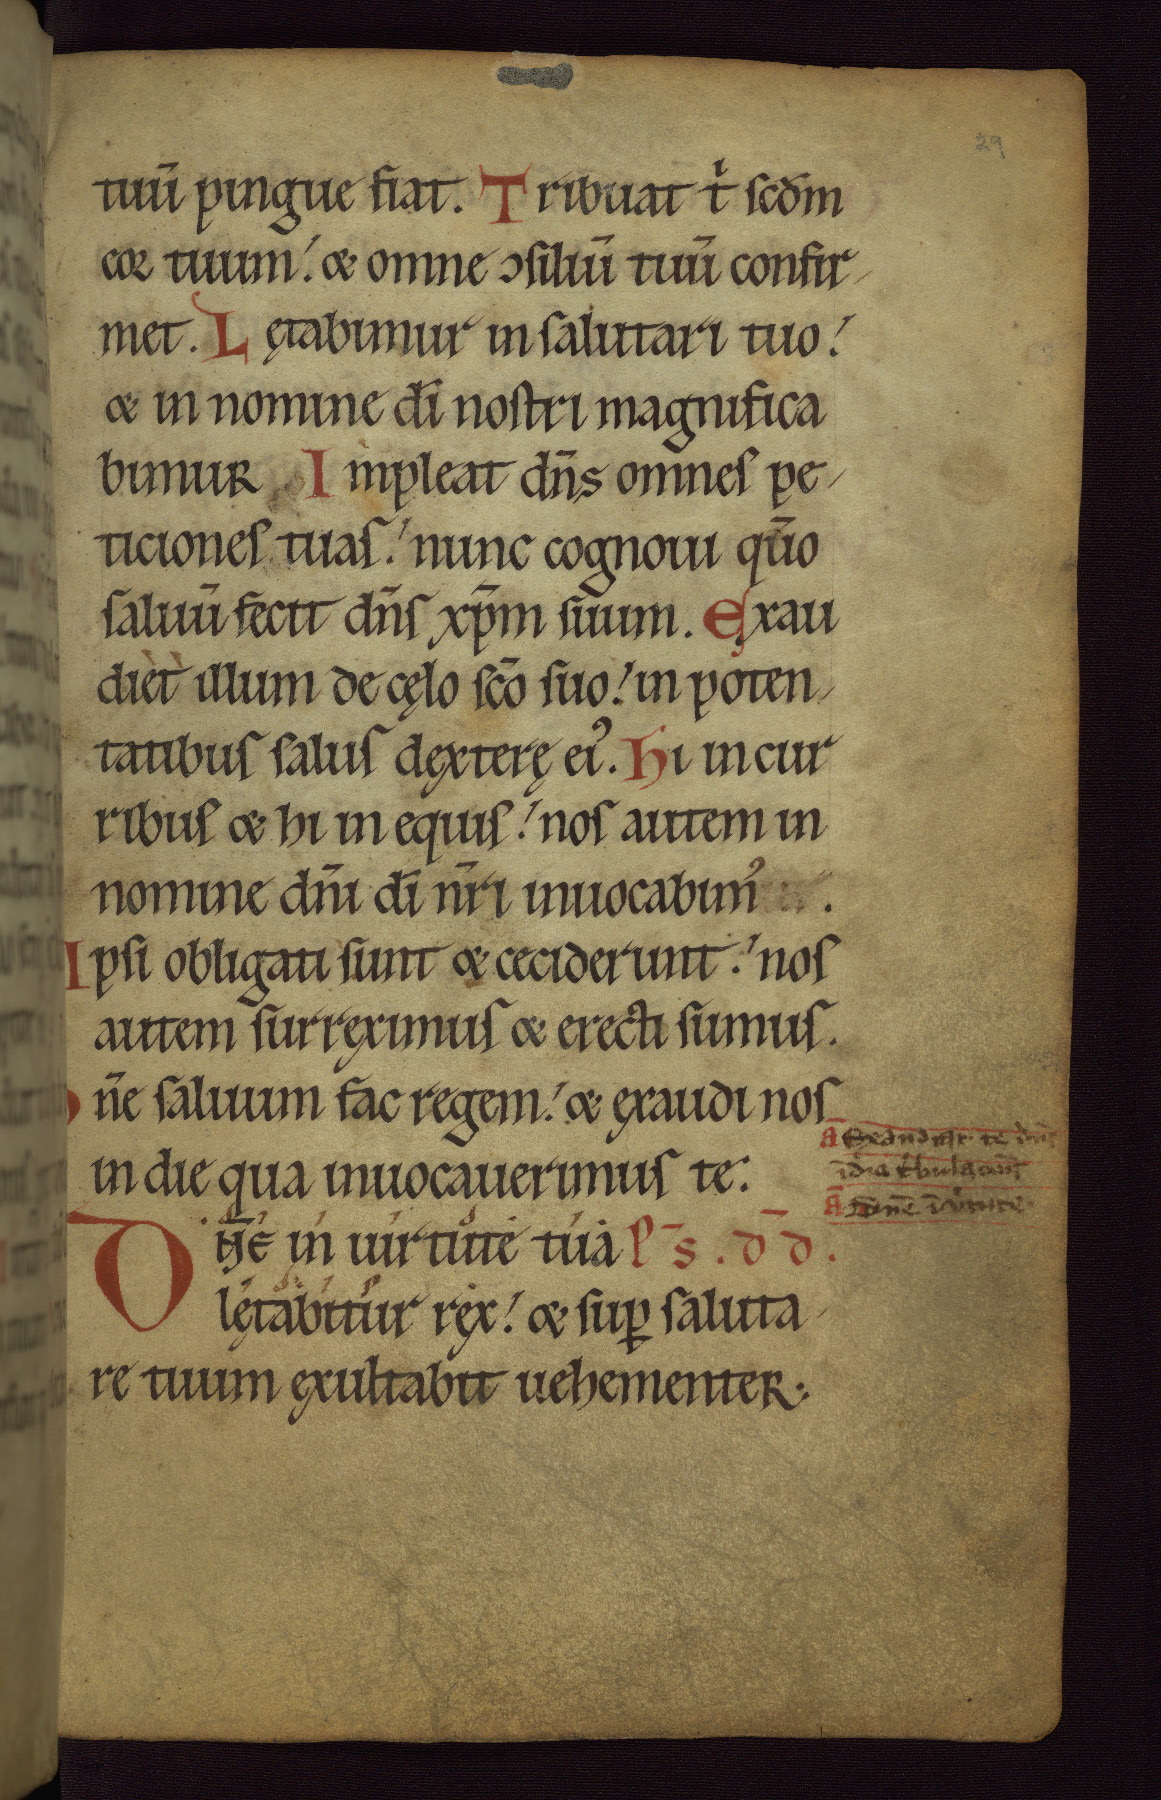 29
tuū pingue fiat. Tribuat t̍ scd̄m
cor tuum! & omne ɔsiliū tuū confir-
met. Lętabimur in salutari tuo!
& in nomine dī nostri magnifica
bimur Impleat dn̄s omnes pe-
ticiones tuas! nunc cognoui qūo
saluū fecit dn̄s xp̄m suum. Exau
diet illum de cęlo scō suo! in poten-
tatibus salus dęxterę eiꝰ. Hi in cur
ribus & hi in equis! nos autem in
nomine dn̄i dī nr̄i inuocabimꝰ.
Ipsi obligati sunt & ceciderunt! nos
autem surręximus & erecti sumus.
Dn̄e saluum fac regem! & ęxaudi nos
in die qua inuocauerimus te:
Dn̄e in uirtute tua ps̄. dd̄.
lętabitur ręx! & suꝑ saluta-
re tuum ęxultabit uehementer:
a Exaudiat te dn̄s
ī die t̍bulacōis
a Dn̄e ī u̍tute